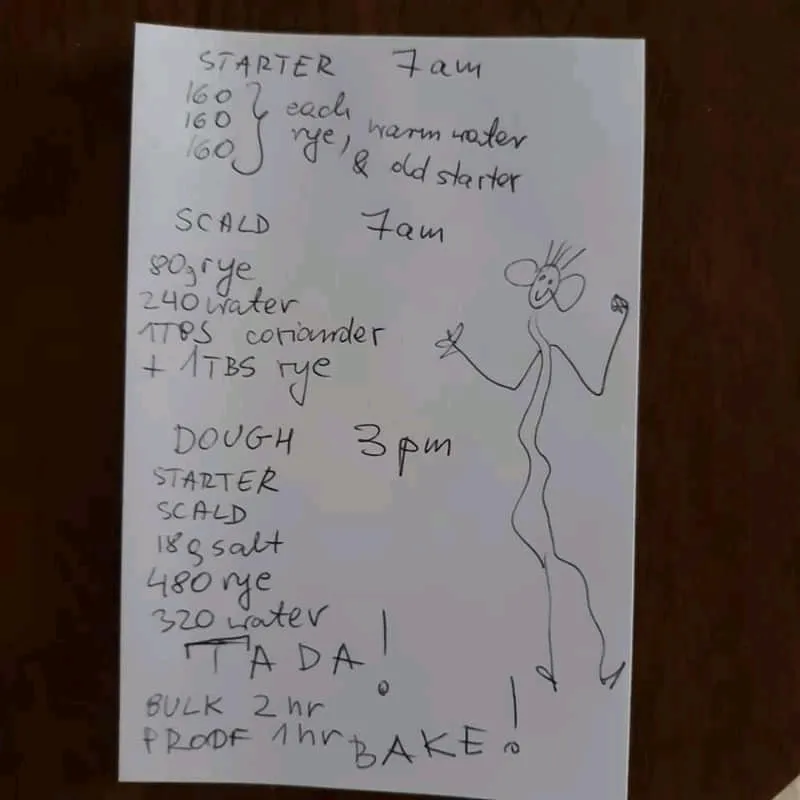 STARTER 7am
160
160
160
each
rye, warm water
& old starter
SCALD 7am
80g rye
240 water
1TBS coriander
+ 1TBS rye
DOUGH 3pm
STARTER
SCALD
18g salt
480 rye
320 water
TADA!
BULK 2hr
PROOF 1hr BAKE!